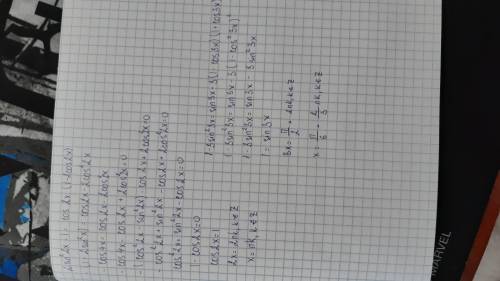 2sin²2x = cos2x (1-2cos2x)
-(1-2sin²2x) = cos2x-2cos²2x
-cos4x = cos2x-2cos²2x
-cos4x - cos2x + 2cos²2x=0
-(cos²2x - sin²2x) - cos2x + 2cos²2x=0
-cos²2x + sin²2x - cos2x + 2cos²2x=0
cos²2x + sin²2x - cos2x=0
1-cos2x=0
cos2x=1
2x=2πk, k∈Z
x=πk, k∈Z
1-3sin²3x = sin3x-3(1-cos3x)(1+cos3x)
1-3sin²3x = sin3x-3(1-cos²3x)
1-3sin²3x = sin3x - 3sin²3x
1 = sin3x
3x = π/2 + 2πk, k∈Z
x = π/6 + 2/3 πk, k∈Z
MARVEL